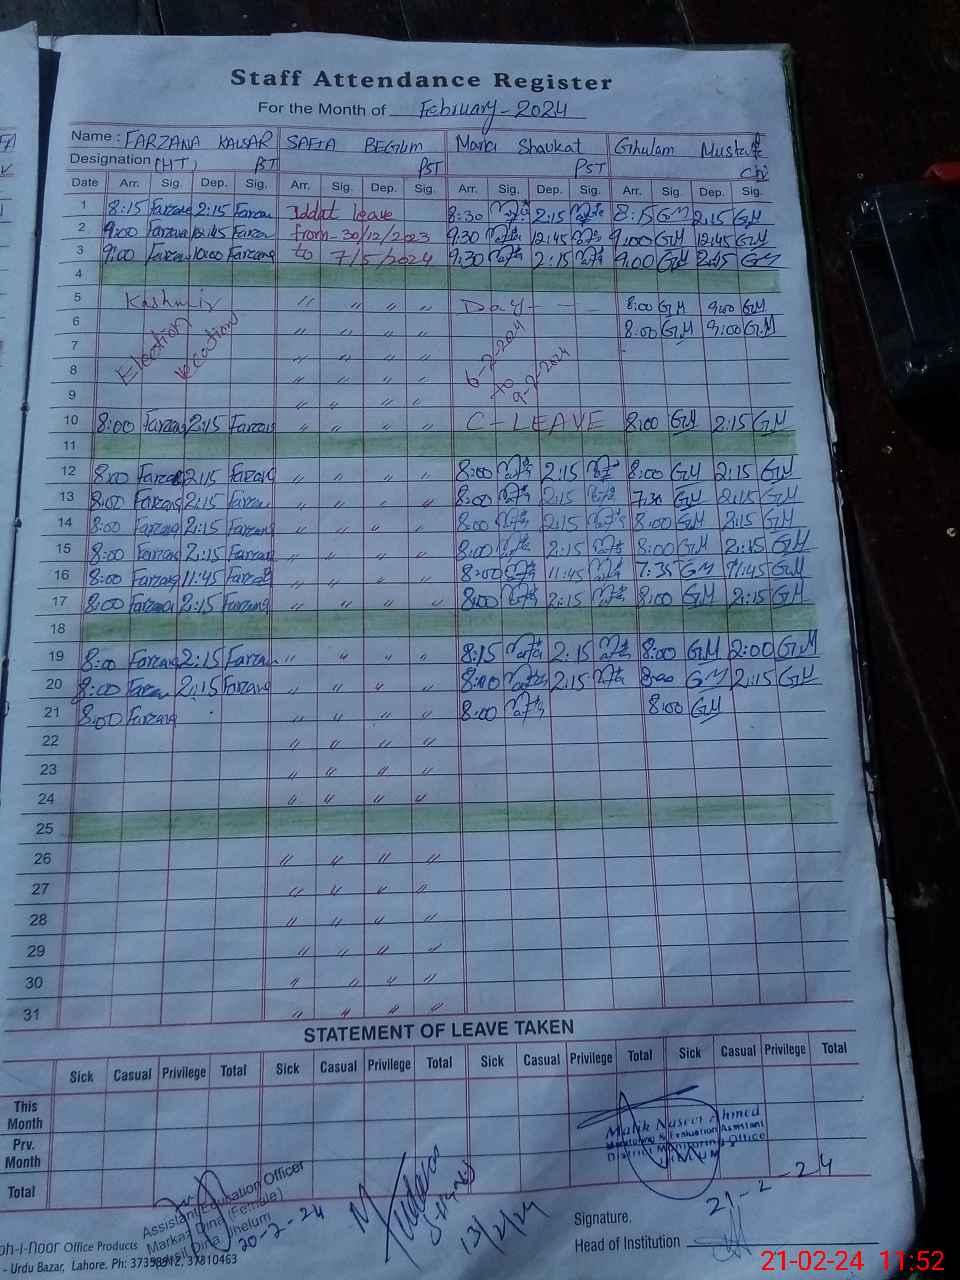 Staff Attendance Register
For the Month of February-2024
Name : FARZANA KAUSAR SAFIA BEGUM Maria Shaukat Ghulam Mustafa
Designation (HT) PST PST
Date Arr. Sig. Dep. Sig. Arr. Sig. Dep. Sig. Arr. Sig. Dep. Sig. Arr. Sig. Dep. Sig.
1 8:15 Farzana 2:15 Farzana Iddat leave 8:30 2:15 8:15 GM 2:15 GM
2 9:00 Farzana 12:45 Farzan from - 30/12/2023 9:30 12:45 9:00 GM 12:45 GM
3 9:00 Farzan 10:00 Farzana to 7/5/2024 9:30 2:15 9:00 GM 2:15 GM
4
5 Kashmir " " " " Day - - 8:00 GM 9:00 GM
6 Election vecations " " " " 6-2-2024 to 9-2-2024 8:00 GM 9:00 GM
7 " " " "
8 " " " "
9 " " " "
10 8:00 Farzana 2:15 Farzana " " " " C-LEAVE 8:00 GM 2:15 GM
11
12 8:00 Farzana 2:15 Farzana " " " " 8:00 2:15 8:00 GM 2:15 GM
13 8:00 Farzana 2:15 Farzana " " " " 8:00 2:15 7:30 GM 2:15 GM
14 8:00 Farzana 2:15 Farzana " " " " 8:00 2:15 8:00 GM 2:15 GM
15 8:00 Farzana 2:15 Farzana " " " " 8:00 2:15 8:00 GM 2:15 GM
16 8:00 Farzana 11:45 Farzana " " " " 8:00 11:45 7:35 GM 11:45 GM
17 8:00 Farzana 2:15 Farzana " " " " 8:00 2:15 8:00 GM 2:15 GM
18
19 8:00 Farzana 2:15 Farzana " " " " 8:15 2:15 8:00 GM 2:00 GM
20 8:00 Farzan 2:15 Farzana " " " " 8:00 2:15 8:00 GM 2:15 GM
21 8:00 Farzana " " " " 8:00 8:00 GM
22 " " " "
23 " " " "
24 " " " "
25
26 " " " "
27 " " " "
28 " " " "
29 " " " "
30 " " " "
31 " " " "
STATEMENT OF LEAVE TAKEN
Sick Casual Privilege Total Sick Casual Privilege Total Sick Casual Privilege Total Sick Casual Privilege Total
This Month
Prv. Month
Total
Malik Naseer Ahmed
Monitoring & Evaluation Assistant
District Monitoring Office
JHELUM
21-2-24
Assistant Education Officer
Markaz Dina (Female)
Tehsil Dina, Jhelum
20-2-24
13/2/24
Signature.
Head of Institution
oh-i-noor Office Products
- Urdu Bazar, Lahore. Ph: 37358912, 37310463
21-02-24 11:52